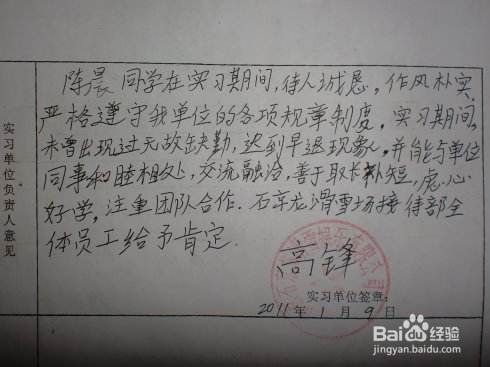 实习单位负责人意见
陈晨同学在实习期间,待人诚恳。作风朴实,
严格遵守我单位的各项规章制度。实习期间,
未曾出现过无故缺勤,迟到早退现象。并能与单位
同事和睦相处,交流融洽,善于取长补短,虚心
好学,注重团队合作.石京龙滑雪场接待部全
体员工给予肯定.
高锋
实习单位签章:
2011年1月9日
Baidu经验
jingyan.baidu.com